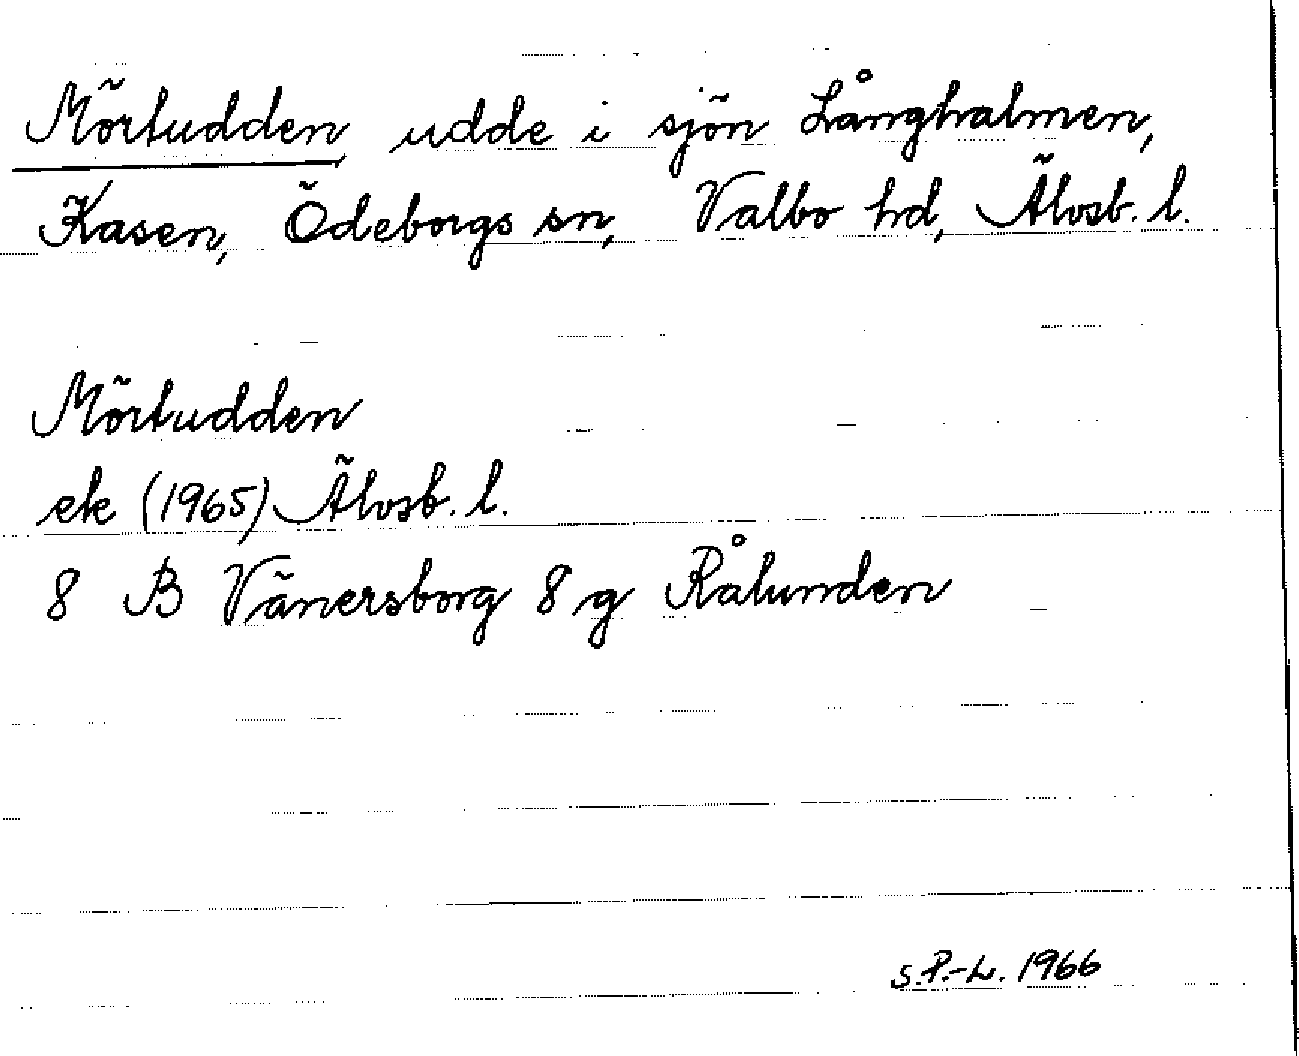 Mörtudden, udde i sjön Långhalmen,
Kasen, Ödeborgs sn, Valbo hd, Älvsb. l.
Mörtudden
ek (1965) Älvsb. l.
8 B Vänersborg 8 g Rålunden
S.P.-L. 1966